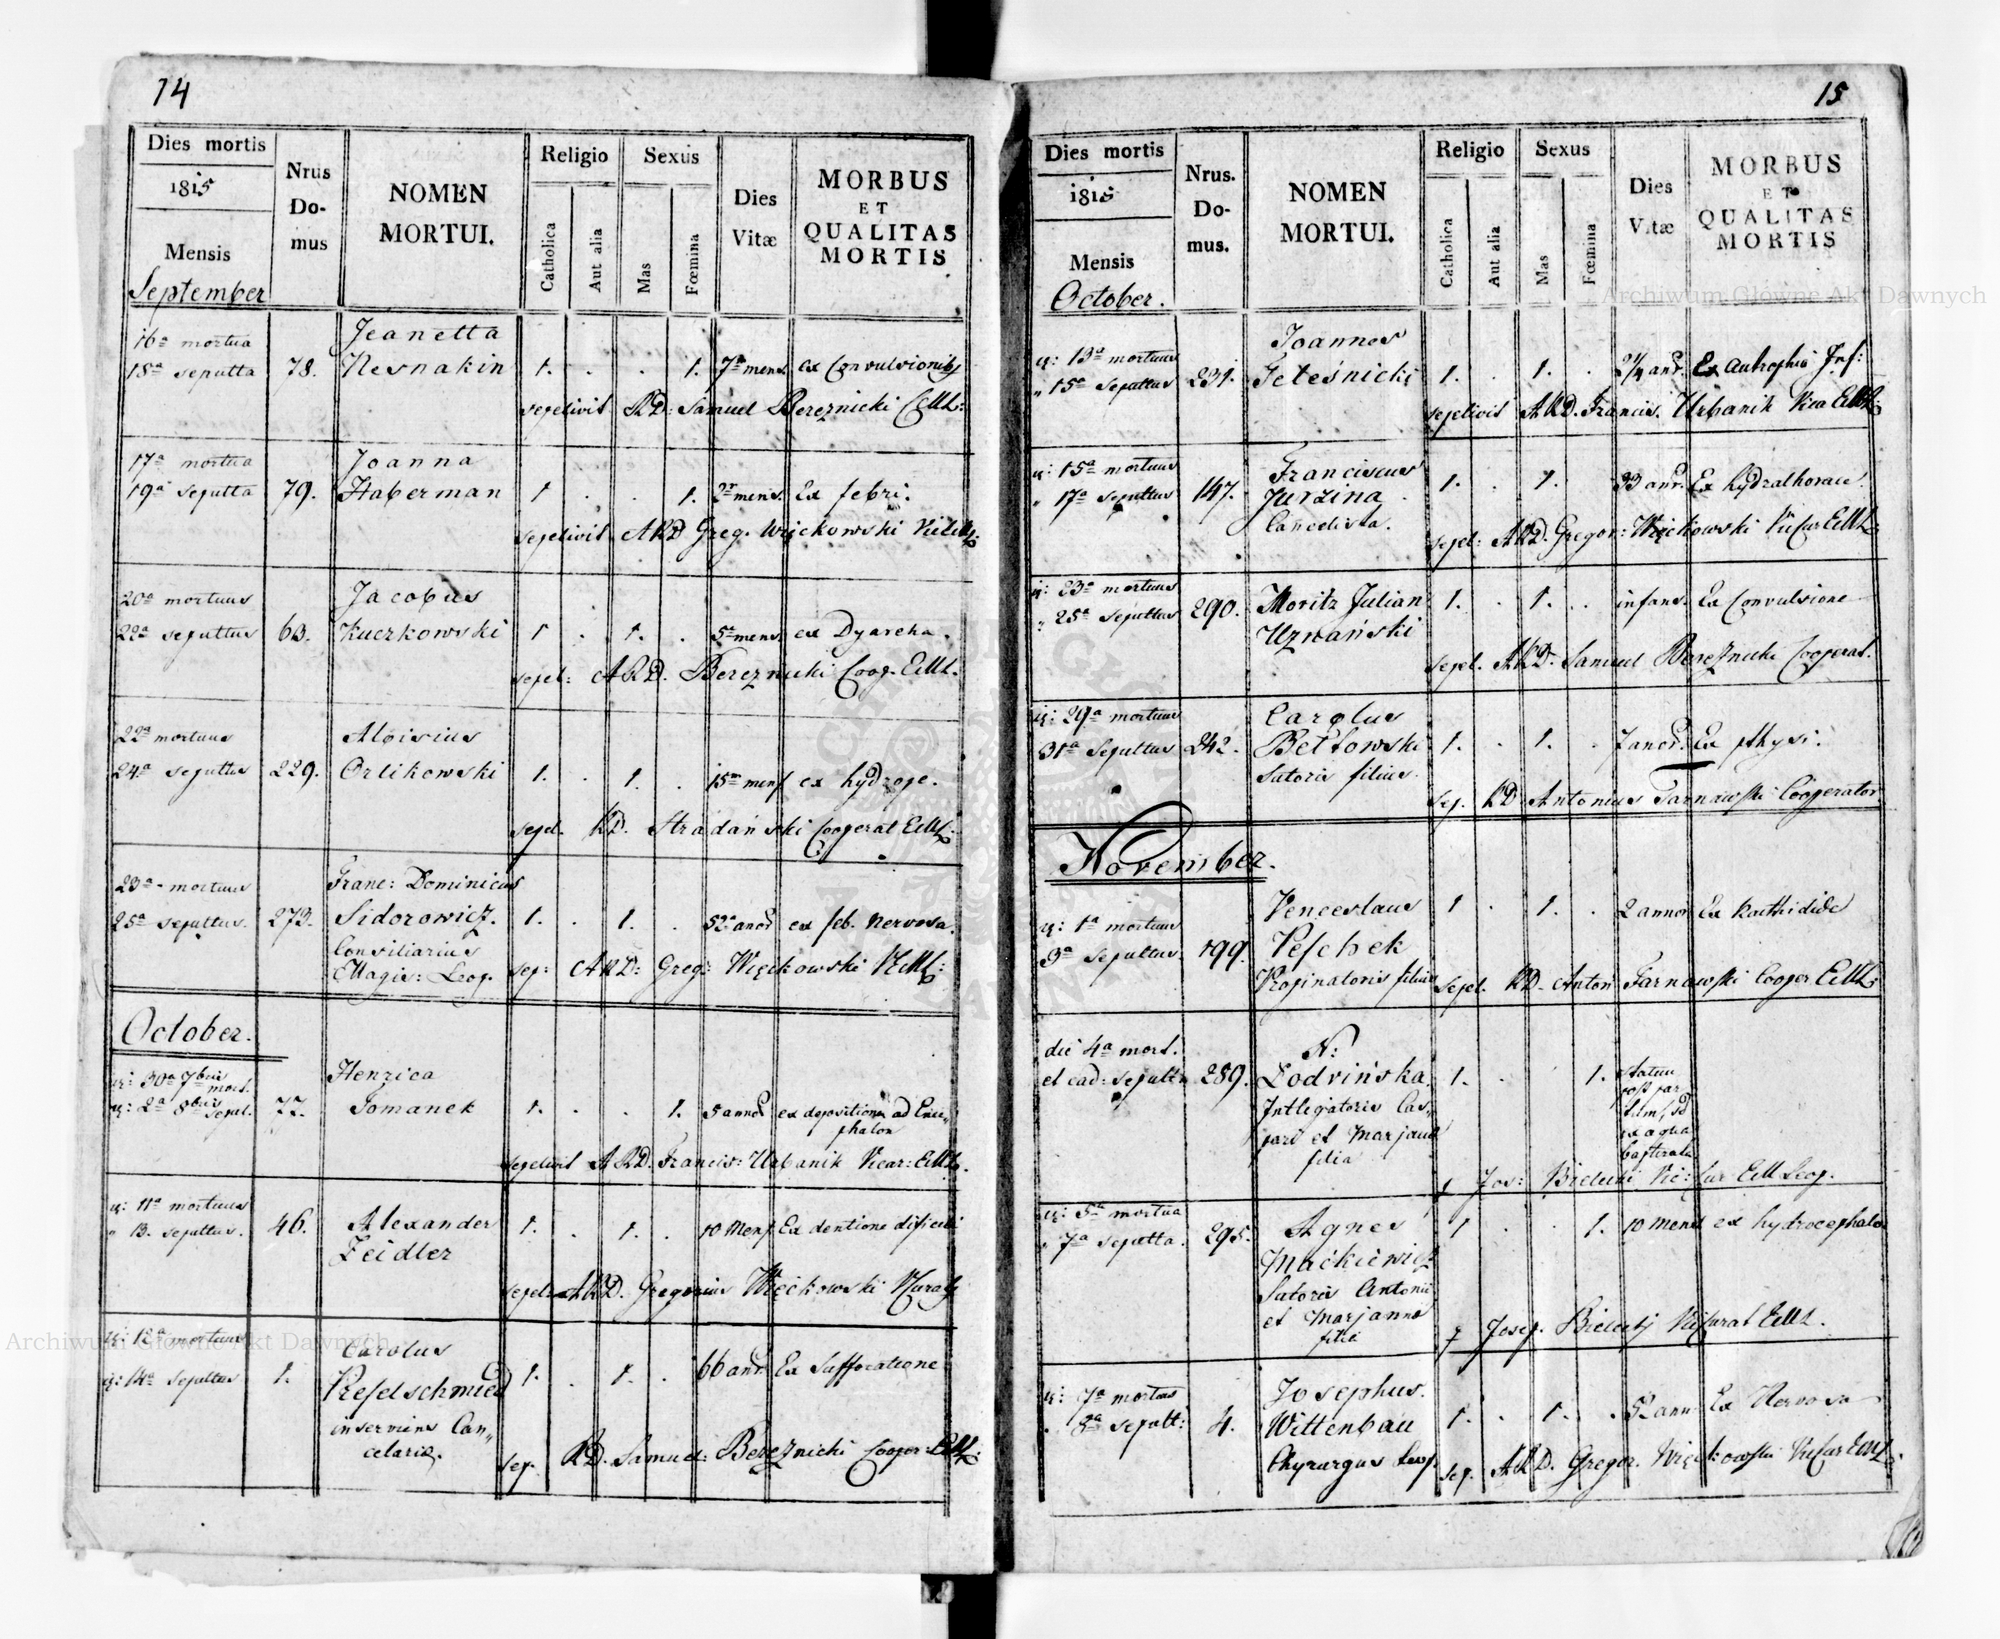 14
Dies mortis
1815
Mensis
September
Nrus
Do-
mus
NOMEN
MORTUI.
Religio
Catholica
Aut alia
Sexus
Mas
Fœmina
Dies
Vitæ
MORBUS
ET
QUALITAS
MORTIS
16a mortua
18a sepulta
78.
Jeanetta
Nesnakin
1. . . 1.
7m mens
ex Convulsionib
sepelivit RD: Samuel Bereznicki
17a mortua
19a sepulta
79.
Joanna
Haberman
1 . . 1.
mens.
Ex febri.
sepelivit ARD Greg. Więckowski
20a mortuus
22a sepultus
63.
Jacobus
Kuczkowski
1 . 1. .
5a mens
ex Dyareha.
sepel: ARD. Bereznicki Coop. EML.
22a mortuus
24a sepultus
229.
Aloisius
Orlikowski
1. . 1. .
15m mens
ex hydrope.
sepel. RD. Stradański Cooperat EML:
23a mortuus
25a sepultus.
273.
Franc: Dominicus
Sidorowicz.
Consiliarius
Magis: Leop.
1. . 1. .
52a
ex feb. nervosa.
sep: ARD: Greg: Więckowski
October.
30a 7bris mort.
2a 8bris sepel.
77.
Henrica
Tomanek
1. . . 1.
5
ex depositione ad Ence„
phalon
sepelivit ARD. Francis: Urbanik Vicar: EML.
11a mortuus
13. sepultus.
46.
Alexander
Zeidler
1. . 1. .
10 Mens
Ex dentione dificili
sepel: ARD. Gregorius Więckowski
12a mortuus
14a sepultus
1.
Carolus
Kesselschmied
inserviens Can„
celariæ.
1. . 1. .
66
Ex Suffocatione
sep. RD. Samuel: Bereznicki Cooper: EML:
15
Dies mortis
1815
Mensis
October.
Nrus.
Do-
mus.
NOMEN
MORTUI.
Religio
Catholica
Aut alia
Sexus
Mas
Fœmina
Dies
Vitæ
MORBUS
ET
QUALITAS
MORTIS
13a mortuus
15a sepultus
231.
Joannes
Teleśnicki
1. . 1. .
2¼
Ex Inf:
sepelivit ARD. Francis. Urbanik
15a mortuus
17a sepultus
147.
Franciscus
Jurzina
Cancelista.
1. . 1. .
33
Ex hydrathorace.
sepel: ARD. Gregor: Więckowski
23a mortuus
25a sepultus
290.
Moritz Julian
Uznański
1. . 1. .
infans.
Ex Convulsione
sepel. ARD. Samuel Bereznicki Cooperat.
29a mortuus
31a Sepultus
242.
Carolus
Bełtowski
Sutoris filius.
1. . 1. .
7
Ex pthysi.
sep. RD Antonius Tarnawski Cooperator
November.
1a mortuus
3a sepultus.
199.
Venceslaus
Peschek
Propinatoris filius
1 . 1. .
2
Ex
sepel. RD. Anton Tarnawski Cooper EML:
die 4a mort.
et ead: sepult
289.
N:
Lodvińska
Intlegatoris Cas„
pari et Marjannæ
filia
1. . . 1.
statim
post par
ex aqua
Jos: Bielecki EM Leop.
5a mortua
7a sepulta.
295.
Agnes
Mackiewicz
Sutoris Antonii
et Marjannæ
filia
1 . . 1.
10 mens
ex hydrocephalo
Josep. Bielecki
7a mortuus
sepult:
4.
Josephus.
Wittenbau
Chyrurgus Leop.
1. . 1. .
Ex Nervosa
sep. ARD. Gregor. Więckowski
Archiwum Główne Akt Dawnych
Archiwum Główne Akt Dawnych